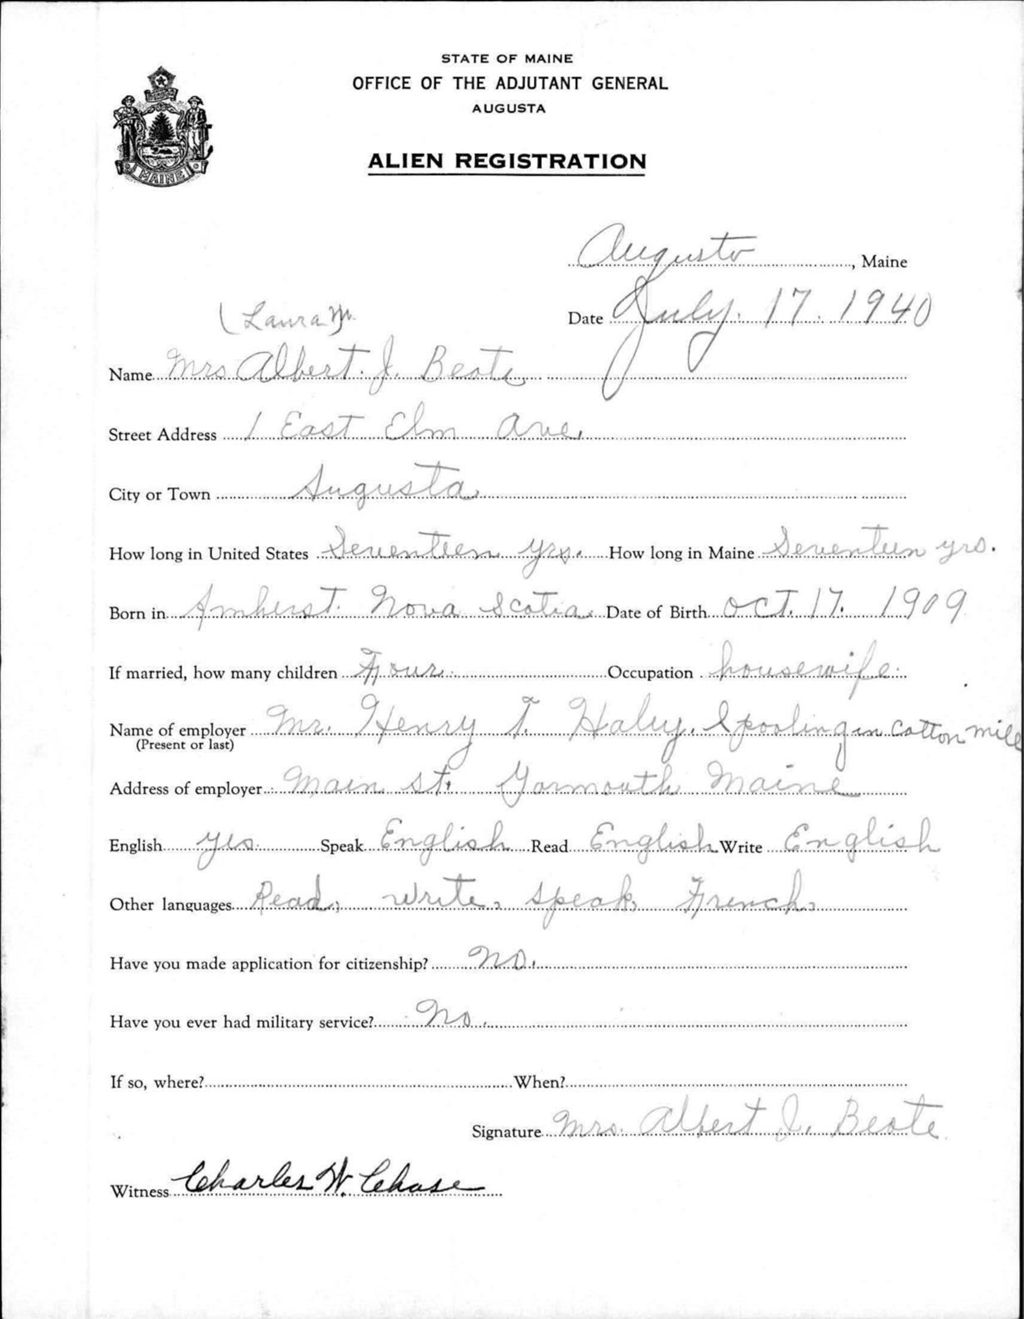 STATE OF MAINE
OFFICE OF THE ADJUTANT GENERAL
AUGUSTA
MAINE
ALIEN REGISTRATION
Augusta, Maine
(Laura M.
Date July. 17. 1940
Name Mrs Albert. J. Beote
Street Address 1 East Elm Ave,
City or Town Augusta.
How long in United States Seventeen yrs. How long in Maine Seventeen yrs.
Born in Amherst. Nova Scotia. Date of Birth Oct. 17. 1909
If married, how many children Four. Occupation housewife.
Name of employer Mr. Henry T. Haley. Spooling in Cotton mill
(Present or last)
Address of employer Main St. Yarmouth Maine
English yes. Speak English Read English Write English
Other languages Read, write, speak, French.
Have you made application for citizenship? No.
Have you ever had military service? No.
If so, where? When?
Signature Mrs. Albert J. Beote
Witness Charles W. Chase